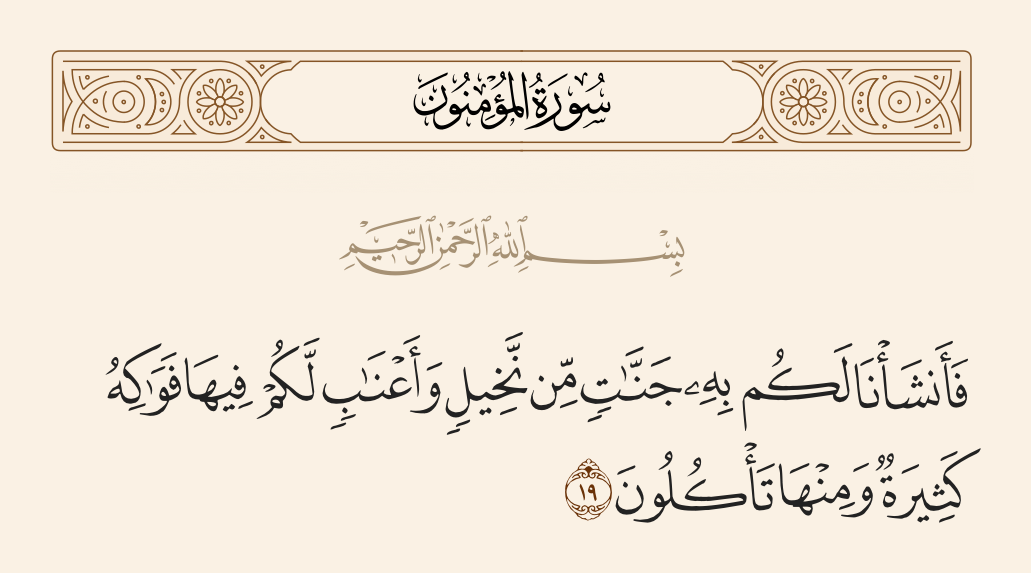 سُورَةُ المُؤْمِنُونَ
بِسْمِ ٱللَّهِ ٱلرَّحْمَٰنِ ٱلرَّحِيمِ
فَأَنشَأْنَا لَكُم بِهِۦ جَنَّٰتٍ مِّن نَّخِيلٍ وَأَعْنَٰبٍ لَّكُمْ فِيهَا فَوَٰكِهُ
كَثِيرَةٌ وَمِنْهَا تَأْكُلُونَ ١٩